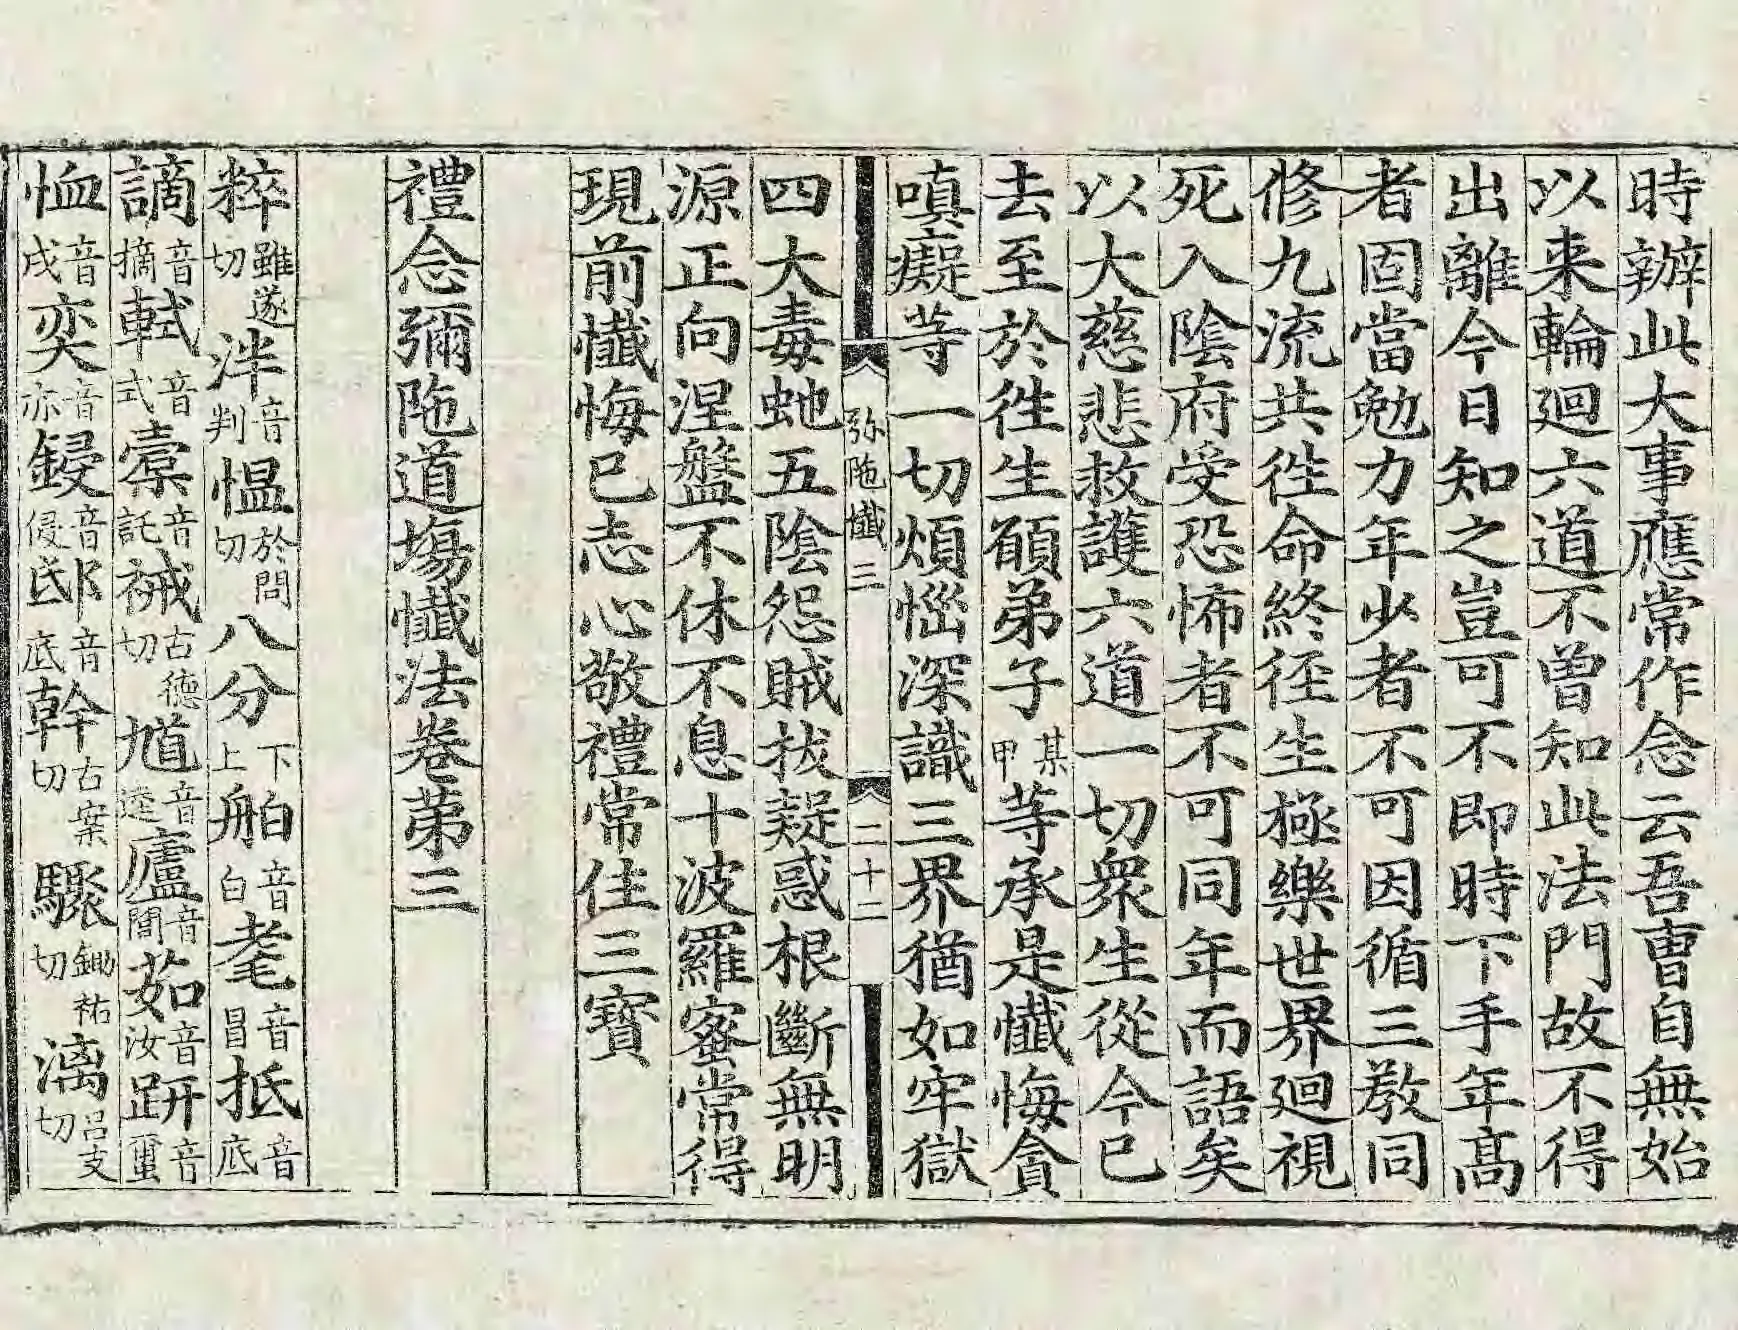 時辦此大事應常作念云吾曹自無始
以来輪迴六道不曾知此法門故不得
出離今日知之豈可不即時下手年髙
者固當勉力年少者不可因循三教同
修九流共徃命終徑生極樂世界迴視
死入陰府受恐怖者不可同年而語矣
以大慈悲救護六道一切衆生從今已
去至於徃生願弟子某甲等承是懺悔貪
嗔癡等一切煩惱深識三界猶如牢獄
弥陁懺三 二十二
四大毒虵五陰怨賊拔疑惑根斷無明
源正向涅盤不休不息十波羅蜜常得
現前懺悔已志心敬禮常住三寶
禮念彌陁道塲懺法卷苐三
粹雖遂切泮音判愠於問切八分下上舶音白耄音冒抵音底
謫音摘軾音式橐音託裓古德切馗音逵廬音閭茹音汝趼音
恤音戌奕音亦鋟音侵邸音底幹古案切驟鋤祐切漓呂支切